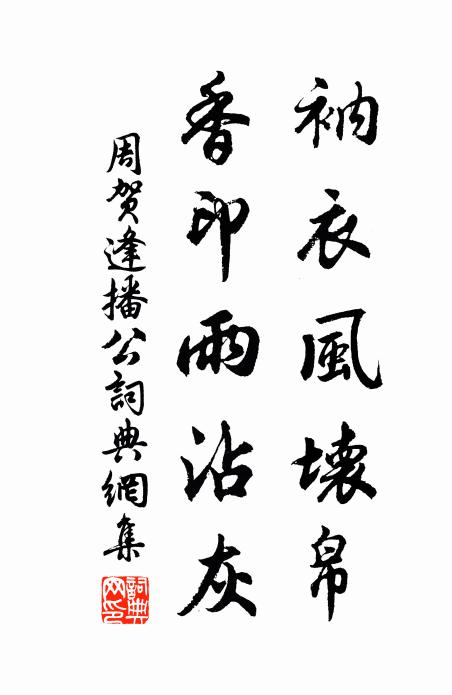 衲衣風壞帛
香印雨沾灰
周賀逢播公詞典網集
詞典網印